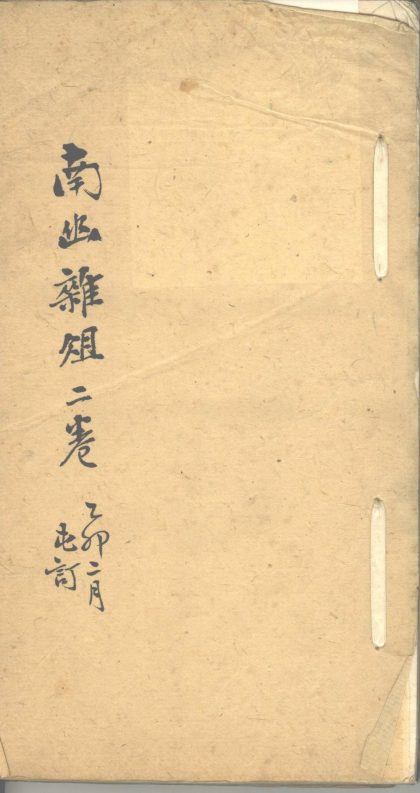 南幽雜俎二卷
乙卯二月
屯訂